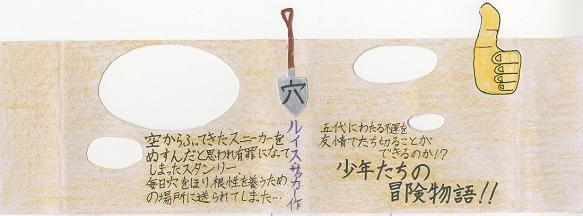 穴
ルイス・サッカー作
五代にわたる不運を
友情でたち切ることが
できるのか!?
少年たちの
冒険物語!!
空からふってきたスニーカーを
ぬすんだと思われ有罪になって
しまったスタンリー。
毎日穴をほり、根性を養うため
の場所に送られてしまった…